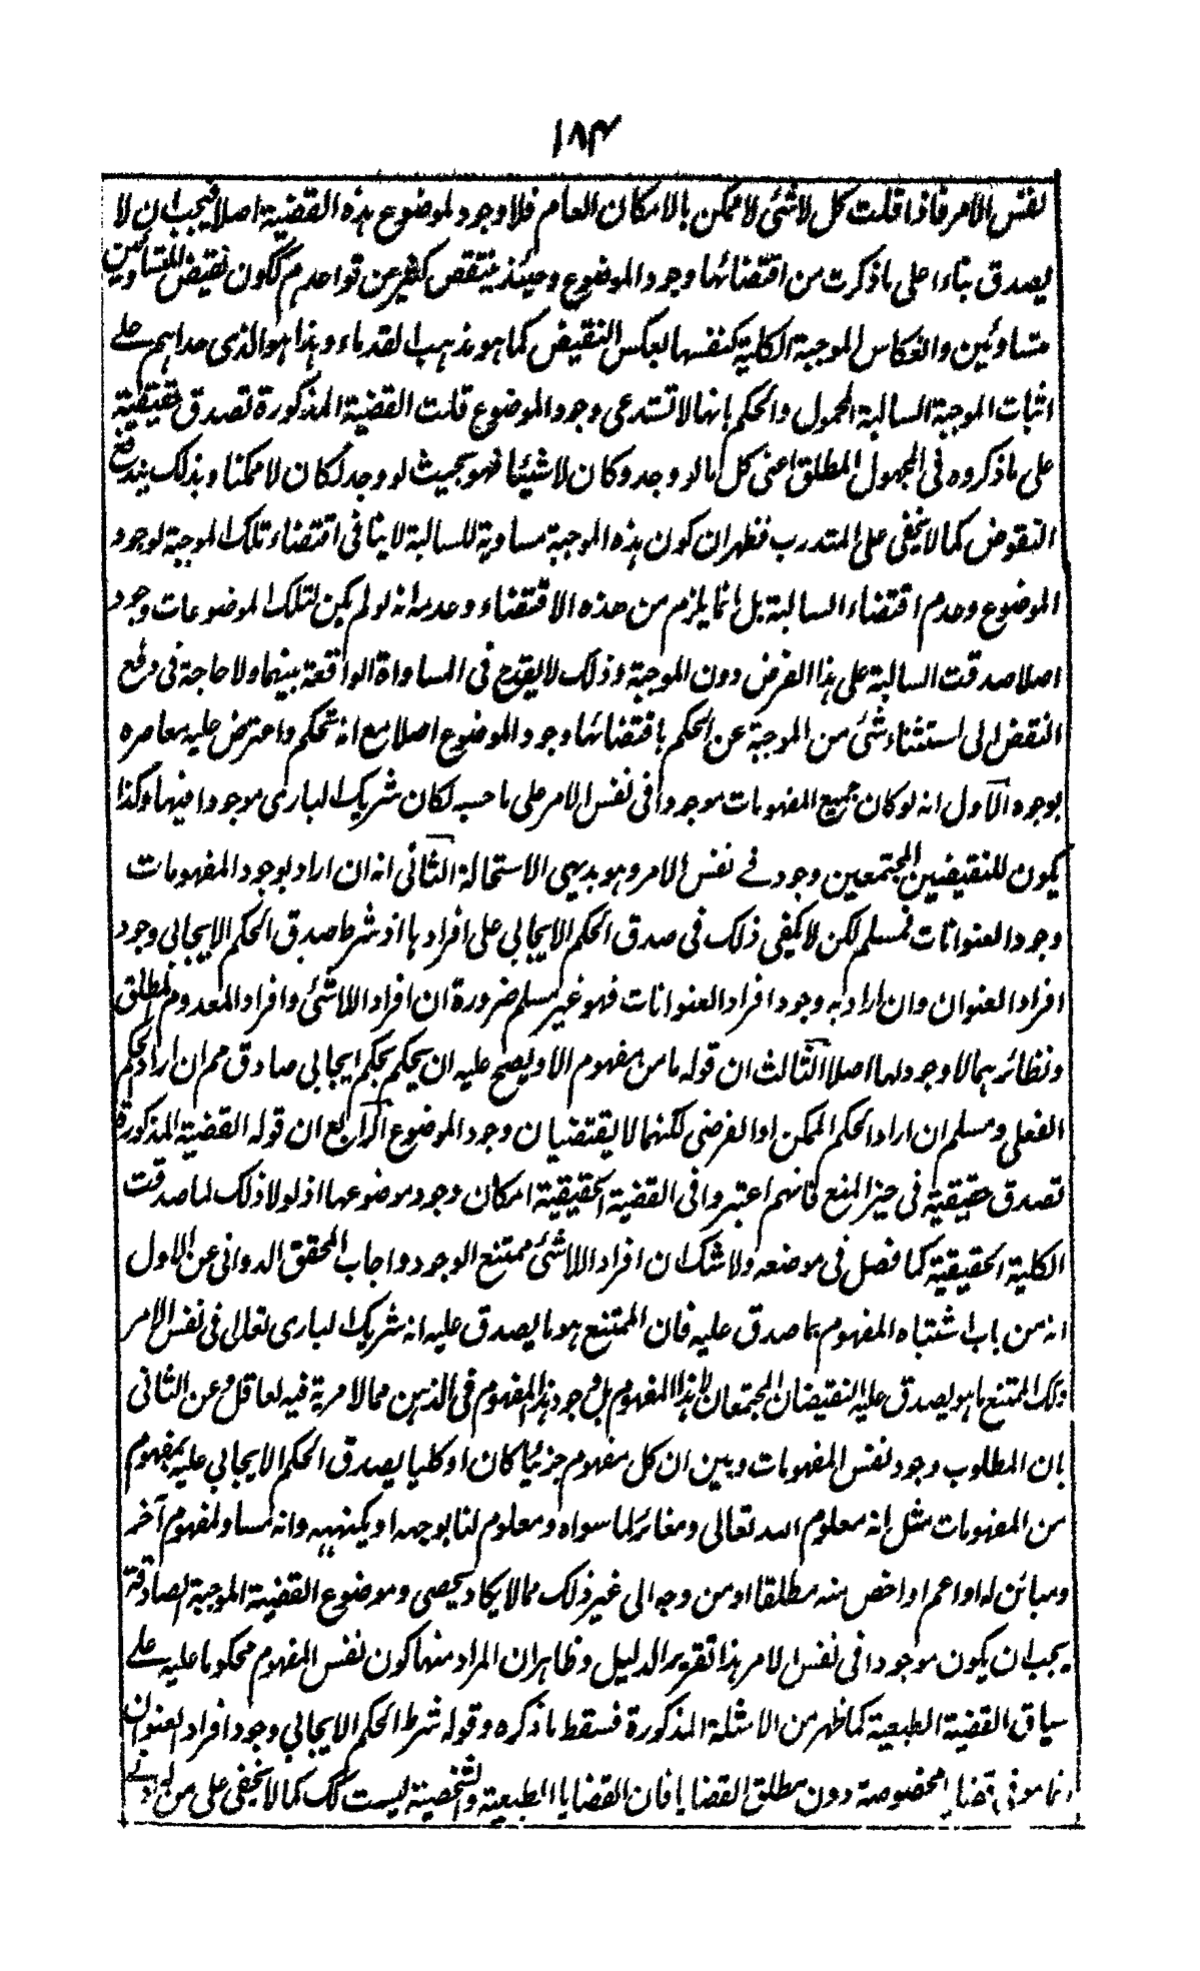 ١٨٣
نفس الامر فاذا قلت كل لاشئ لاممكن بالامكان العام فلا وجود لموضوع هذه القضية اصلا فيجب ان لا
يصدق بناء على ما ذكرت من اقتضائها وجود الموضوع وحينئذ ينتقض كثير من قواعدهم ككون نقيض المتساويين
متساويين وانعكاس الموجبة الكلية كنفسها بعكس النقيض كما هو مذهب القدماء وهذا هو الذى حداهم على
اثبات الموجبة السالبة المحمول والحكم بانها لا تستدعى وجود الموضوع قلت القضية المذكورة تصدق حقيقية
على ما ذكروه فى المجهول المطلق اعنى كل ما لو وجد وكان لاشيئا فهو بحيث لو وجد لكان لاممكنا وبذلك يندفع
النقوض كما لا يخفى على المتدرب فظهر ان كون هذه الموجبة مساوية للسالبة لا ينافى اقتضاء تلك الموجبة لوجود
الموضوع وعدم اقتضاء السالبة بل انما يلزم من هذه الاقتضاء وعدمه انه لو لم يكن لتلك الموضوعات وجود
اصلا صدقت السالبة على هذا الفرض دون الموجبة وذلك لا يقدح فى المساواة الواقعة بينهما ولا حاجة فى دفع
النقض الى استثناء شئ من الموجبة عن الحكم باقتضائها وجود الموضوع اصلا مع انه تحكم واعترض عليه معاصره
بوجوه الاول انه لو كان جميع المفهومات موجودا فى نفس الامر على ما حسبه لكان شريك البارى موجودا فيها وكذا
يكون للنقيضين المجتمعين وجود فے نفس الامر وهو بديهى الاستحالة الثانى انه ان اراد بوجود المفهومات
وجود العنوانات فمسلم لكن لا يكفى ذلك فى صدق الحكم الايجابى على افرادها اذ شرط صدق الحكم الايجابى وجود
افراد العنوان وان اراد به وجود افراد العنوانات فهو غير مسلم ضرورة ان افراد اللاشئ وافراد المعدوم المطلق
ونظائرهما لا وجود لها اصلا الثالث ان قوله ما من مفهوم الا ويصح عليه ان يحكم بحكم ايجابى صادق مم ان اراد الحكم
الفعلى ومسلم ان اراد الحكم الممكن او الفرضى لكنهما لا يقتضيان وجود الموضوع الرابع ان قوله القضية المذكورة
تصدق حقيقية فى حيز المنع فانهم اعتبروا فى القضية الحقيقية امكان وجود موضوعها اذ لولا ذلك لما صدقت
الكلية الحقيقية كما فصل فى موضعه ولا شك ان افراد اللاشئ ممتنع الوجود واجاب المحقق الدوانى عن الاول
انه من باب اشتباه المفهوم بما صدق عليه فان الممتنع هو ما يصدق عليه انه شريك البارى تعالى فى نفس الامر
ذلك الممتنع ما هو يصدق عليه النقيضان المجتمعان لا هذا المفهوم بل وجود هذا المفهوم فى الذهن مما لا مرية فيه لعاقل وعن الثانى
بان المطلوب وجود نفس المفهومات وبين ان كل مفهوم جزئيا كان او كليا يصدق الحكم الايجابى عليه بمفهوم
من المفهومات مثل انه معلوم الله تعالى ومغائر لما سواه ومعلوم لنا بوجه او بكنهه وانه مساو لمفهوم آخر
ومبائن له او اعم او اخص منه مطلقا او من وجه الى غير ذلك مما لا يكاد يحصى وموضوع القضية الموجبة الصادقة
يجب ان يكون موجودا فى نفس الامر هذا تقرير الدليل وظاهر ان المراد منها كون نفس المفهوم محكوما عليه على
سياق القضية الطبعية كما ظهر من الامثلة المذكورة فسقط ما ذكره وقوله شرط الحكم الايجابي وجود افراد العنوان
انما هو فى قضايا مخصوصة دون مطلق القضايا فان القضايا الطبعية والشخصية ليست كك كما لا يخفى على من له